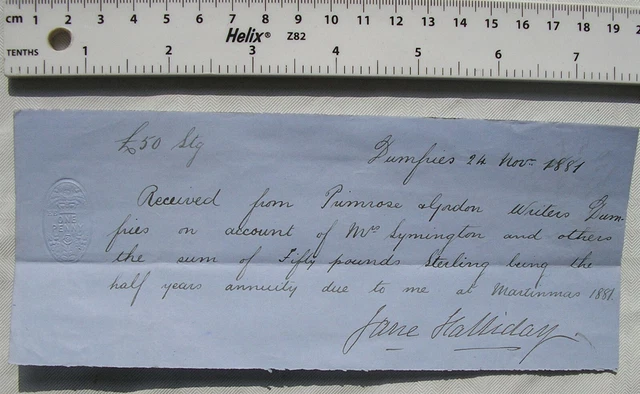 cm 1 2 3 4 5 6 7 8 9 10 11 12 13 14 15 16 17 18 19
Helix® Z82
TENTHS 1 2 3 4 5 6 7
£50 Stg
Dumfries 24 Nov. 1881
Received from Primrose & Gordon Writers Dum-
fries on account of Mrs Symington and others
the sum of Fifty pounds Sterling being the
half years annuity due to me at Martinmas 1881.
Jane Halliday
ONE
PENNY